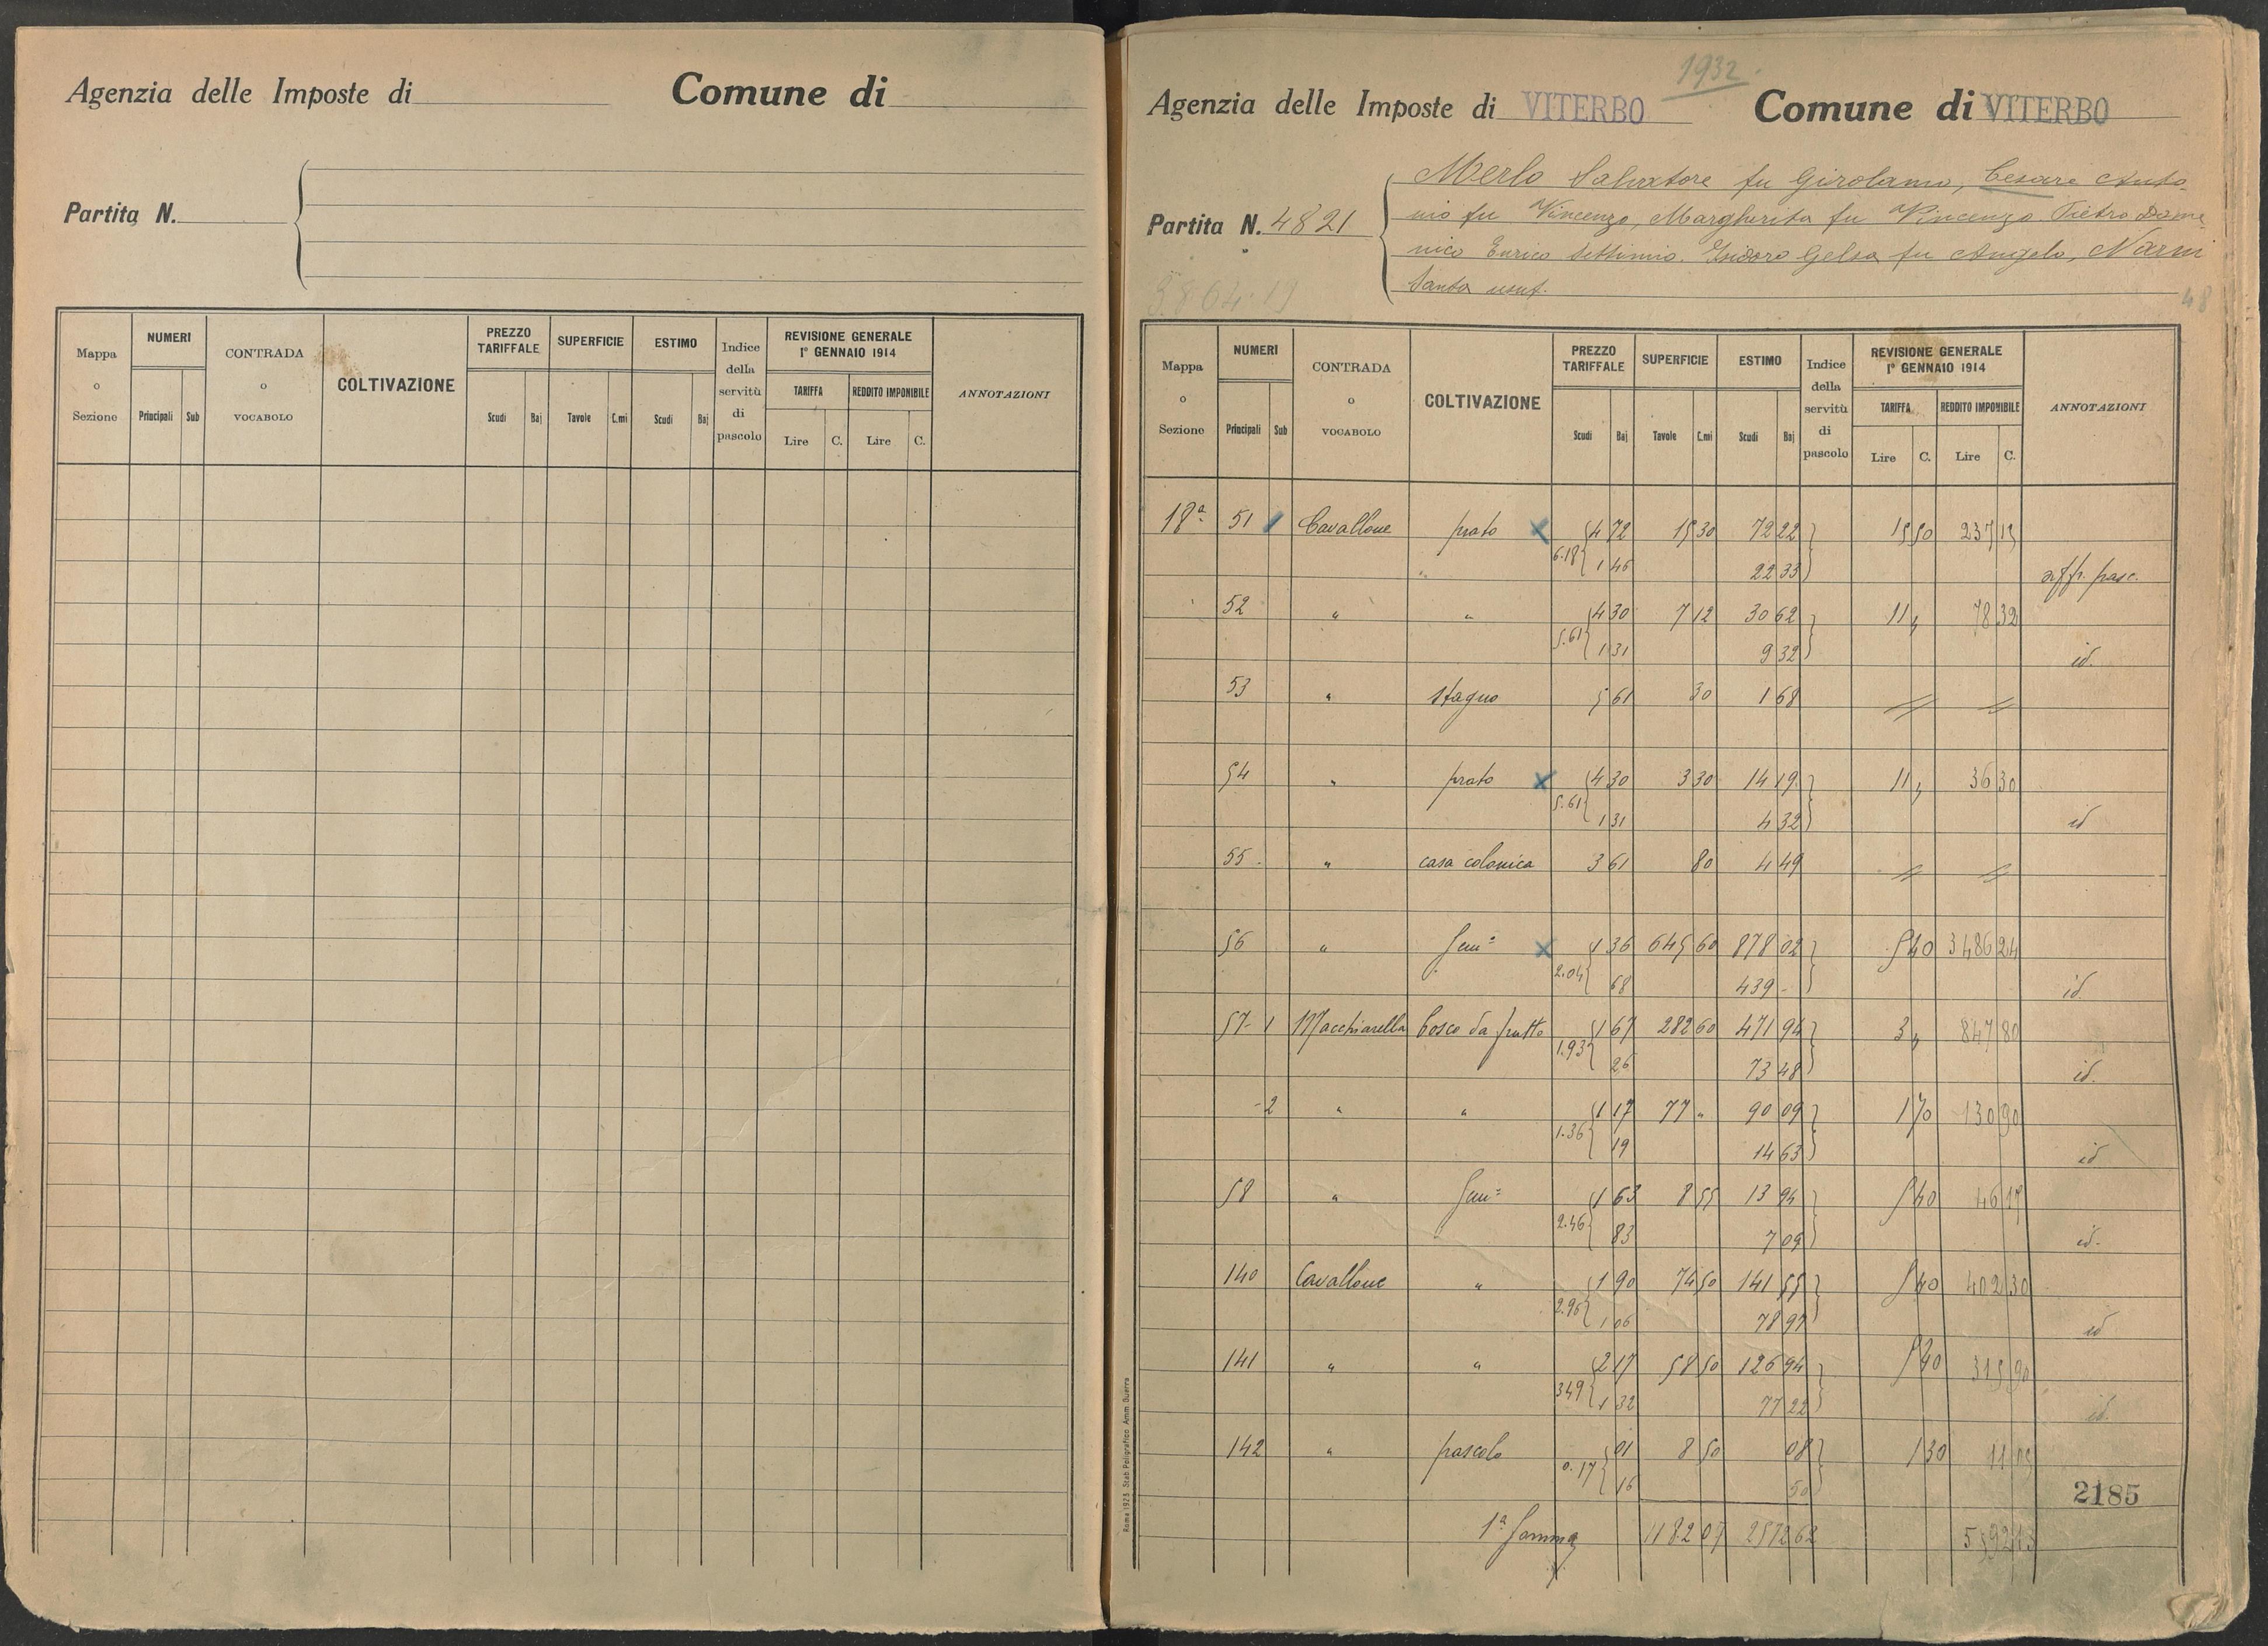 Agenzia delle Imposte di Comune di
Partita N.
Mappa o Sezione NUMERI Principali Sub CONTRADA o VOCABOLO COLTIVAZIONE PREZZO TARIFFALE Scudi Baj SUPERFICIE Tavole C.mi ESTIMO Scudi Baj Indice della servitù di pascolo REVISIONE GENERALE 1° GENNAIO 1914 TARIFFA Lire C. REDDITO IMPONIBILE Lire C. ANNOTAZIONI
1932.
Agenzia delle Imposte di VITERBO Comune di VITERBO
Merlo Salvatore fu Girolamo, Cesare Anto
Partita N. 4821
nio fu Vincenzo, Margherita fu Vincenzo Pietro Dome
nico Enrico Settimio. Isidoro Gelsa fu Angelo, Narni
Santa usuf.
3864.19
48
Mappa o Sezione NUMERI Principali Sub CONTRADA o VOCABOLO COLTIVAZIONE PREZZO TARIFFALE Scudi Baj SUPERFICIE Tavole C.mi ESTIMO Scudi Baj Indice della servitù di pascolo REVISIONE GENERALE 1° GENNAIO 1914 TARIFFA Lire C. REDDITO IMPONIBILE Lire C. ANNOTAZIONI
18ª 51 Cavallone prato x 4 72 15 30 72 22 15 50 237 15
6.18 1 46 22 33 aff. pasc.
52 " " 4 30 7 12 30 62 11 " 78 32
5.61 1 31 9 32 id.
53 " stagno 5 61 30 1 68 // //
54 " prato x 4 30 3 30 14 19 11 " 36 30
5.61 1 31 4 32 id
55 " casa colonica 3 61 80 4 49 // //
56 " Sem° x 1 36 645 60 878 02 5 40 3486 24
2.04 68 439 - id.
57 - 1 Macchiarella bosco da frutto 1 67 282 60 471 94 3 " 847 80
1.93 26 73 48 id.
- 2 " " 1 17 77 " 90 09 1 70 130 90
1.36 19 14 63 id
58 " Sem° 1 63 8 55 13 94 5 40 46 17
2.46 83 7 09 id.
140 Cavallone " 1 90 74 50 141 55 5 40 402 30
2.96 1 06 78 97 id
141 " " 2 17 58 50 126 94 5 40 315 90
3.49 1 32 77 22 id.
142 " pascolo 01 8 50 08 1 30 11 05
0.17 16 50
2185
1ª Somma 1182 07 2572 62 5592 13
Roma 1923. Stab. Poligrafico Amm. Guerra